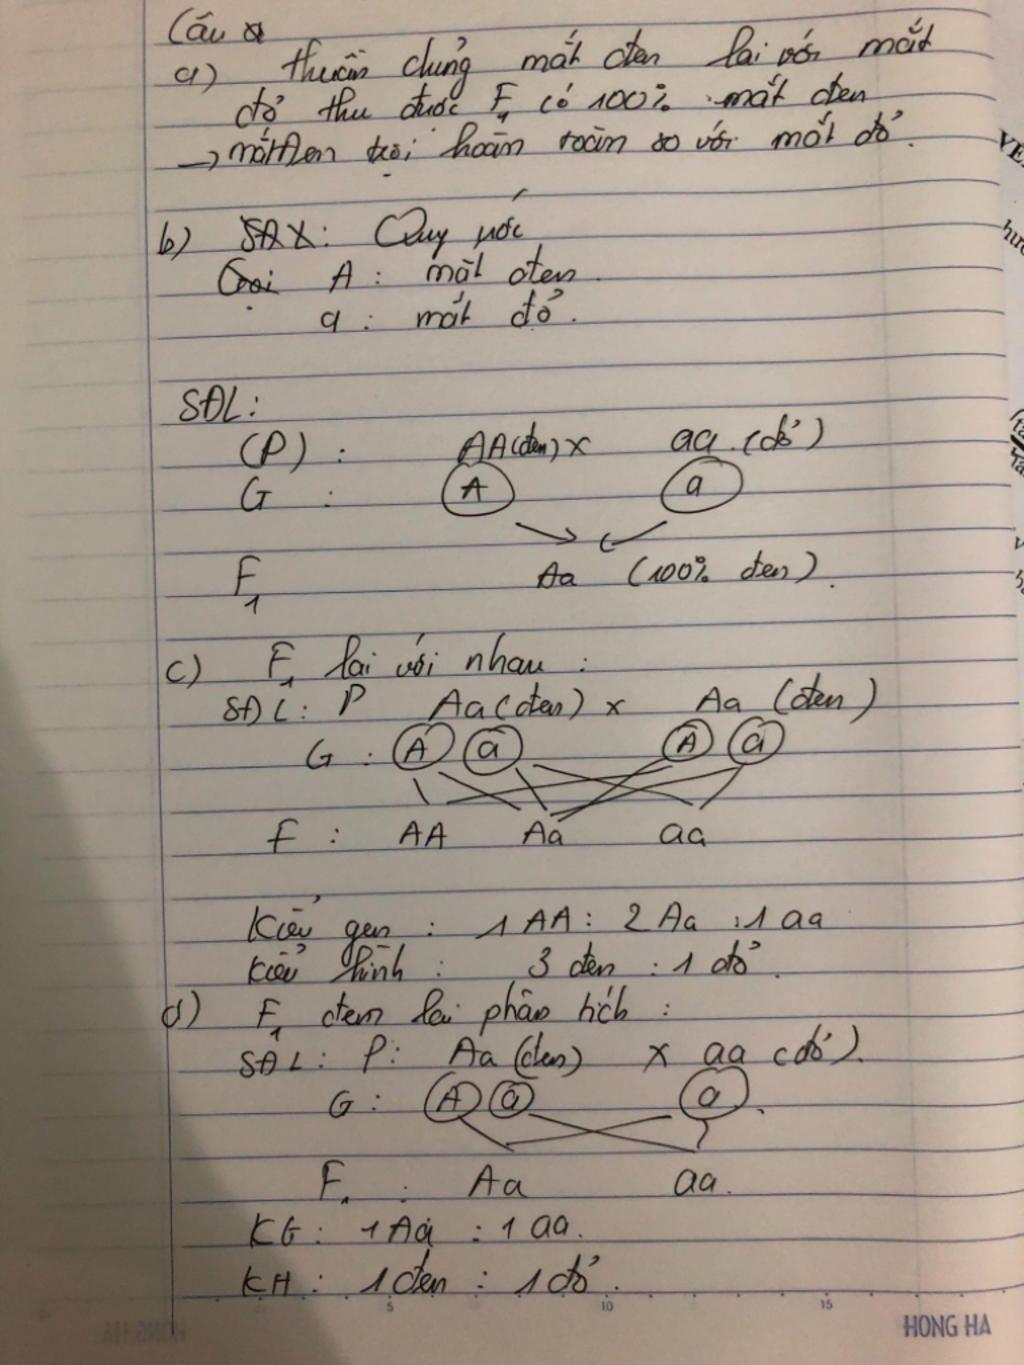 Câu
a) thuần chủng mắt đen lai với mắt
đỏ thu được F1 có 100% mắt đen
→ mắt đen trội hoàn toàn so với mắt đỏ.
b) Quy ước
Gọi A : mắt đen.
a : mắt đỏ.
SĐL:
(P) : AA (đen) x aa (đỏ)
G : A a
F1 Aa (100% đen).
c) F1 lai với nhau :
SĐL: P Aa (đen) x Aa (đen)
G : A a A a
F : AA Aa aa
Kiểu gen : 1 AA : 2 Aa : 1 aa
Kiểu hình : 3 đen : 1 đỏ.
d) F1 đem lai phân tích :
SĐL: P: Aa (đen) x aa (đỏ).
G : A a a
F1 : Aa aa.
KG : 1 Aa : 1 aa.
KH : 1 đen : 1 đỏ.
5 10 15
HONG HA